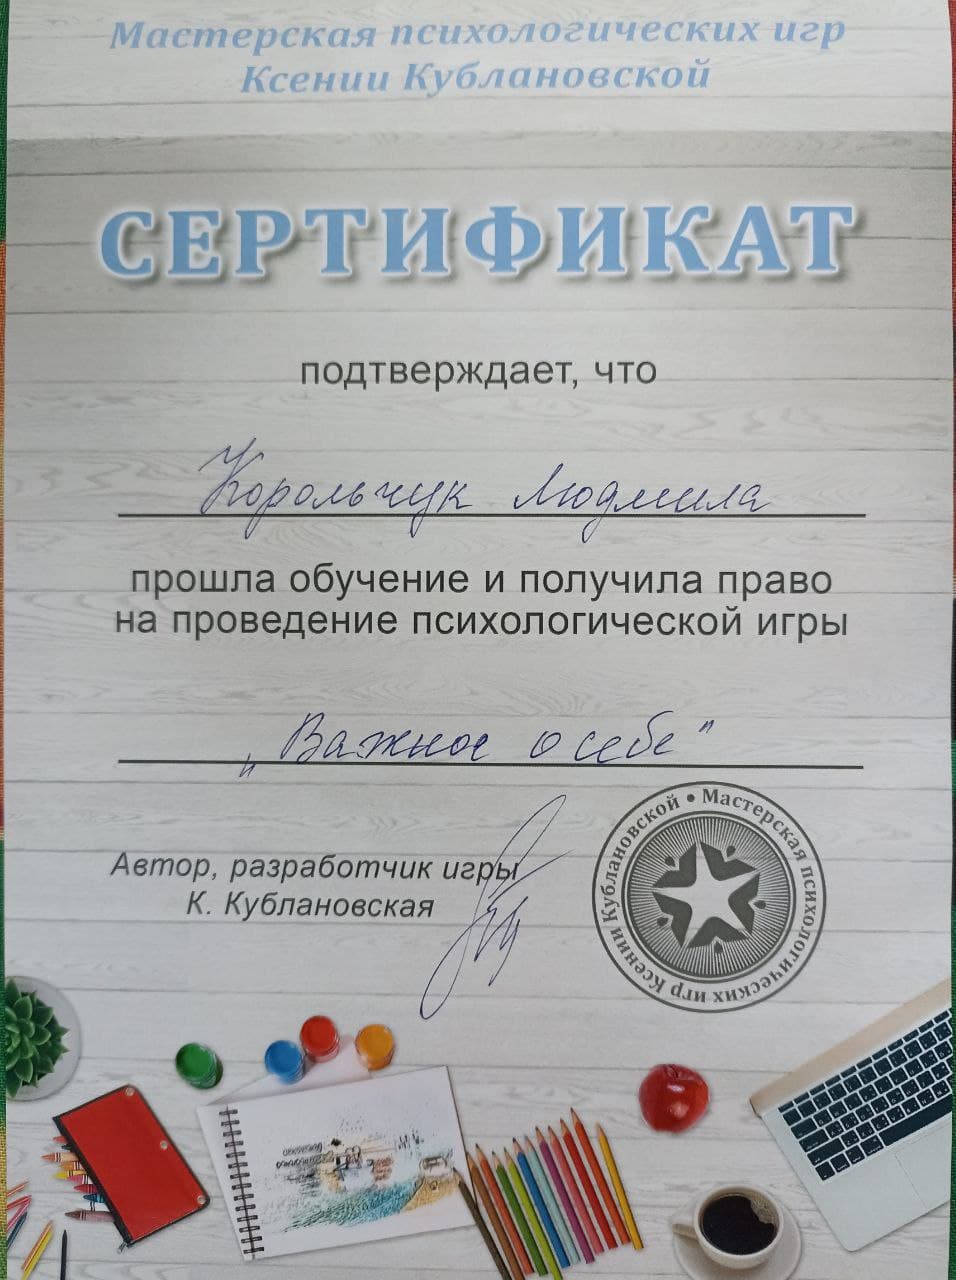 Мастерская психологических игр
Ксении Кублановской
СЕРТИФИКАТ
подтверждает, что
Корольчук Людмила
прошла обучение и получила право
на проведение психологической игры
„Важное о себе"
Автор, разработчик игры
К. Кублановская
Мастерская психологических игр Ксении Кублановской •